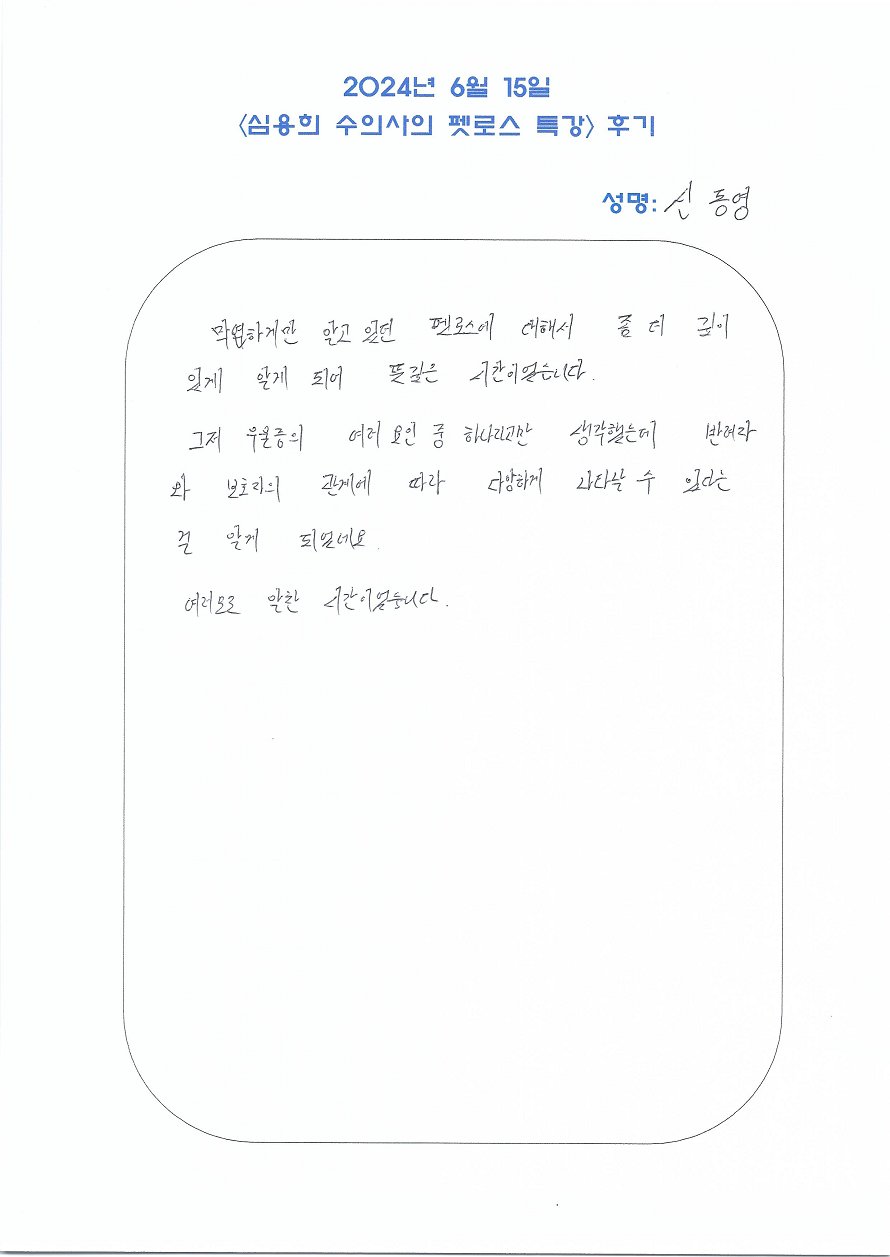 2024년 6월 15일
<심용희 수의사의 펫로스 특강> 후기
성명: 신동영
막연하게만 알고 있던 펫로스에 대해서 좀 더 깊이
있게 알게 되어 뜻깊은 시간이었습니다.
그저 우울증의 여러 요인 중 하나라고만 생각했는데 반려자
와 보호자의 관계에 따라 다양하게 나타날 수 있다는
걸 알게 되었네요.
여러모로 알찬 시간이었습니다.